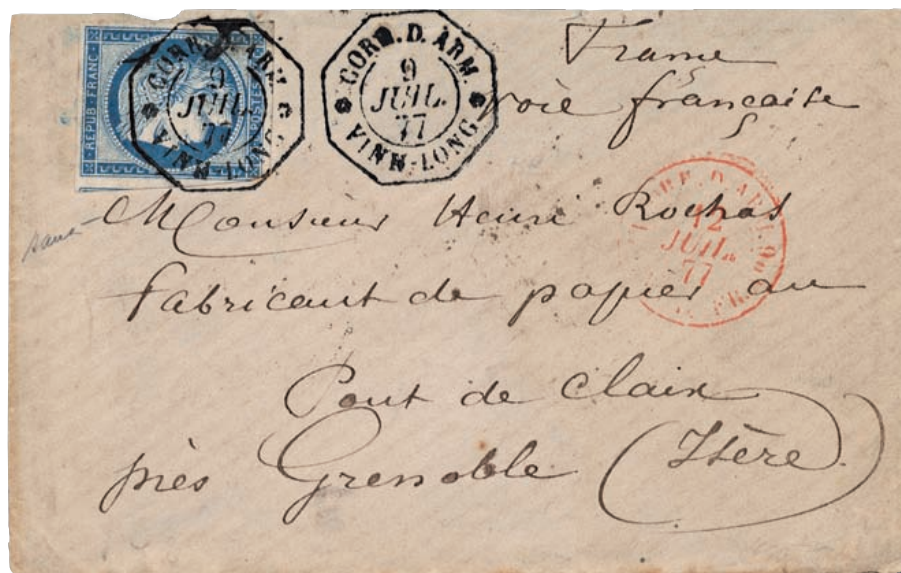 REPUB. FRANC. POSTES
CORR. D. ARM.
9
JUIL.
77
VINH-LONG
CORR. D. ARM.
9
JUIL.
77
VINH-LONG
France
voie française
Monsieur Henri Rochas
12
JUIL.
77
fabricant de papier au
Pont de Claix
près Grenoble (Isère)